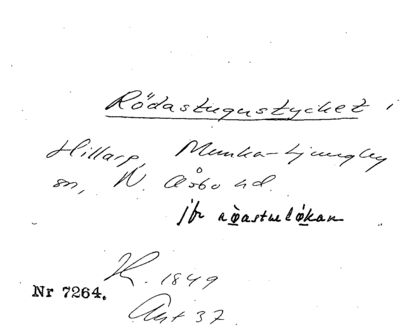 Rödastugustycket i
Hillarp, Munka-Ljungby
sn, N. Åsbo hd.
jfr
1849
Nr 7264.
Akt 37